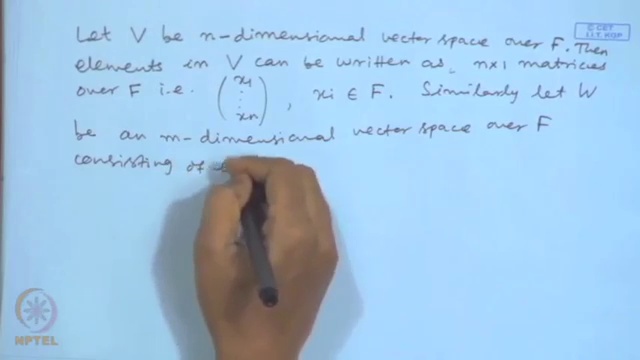 © CET
I.I.T. KGP
Let V be n-dimensional vector space over F. Then
elements in V can be written as, n×1 matrices
over F i.e. (x1 ⋮ xn), xi ∈ F. Similarly let W
be an m-dimensional vector space over F
consisting of
NPTEL